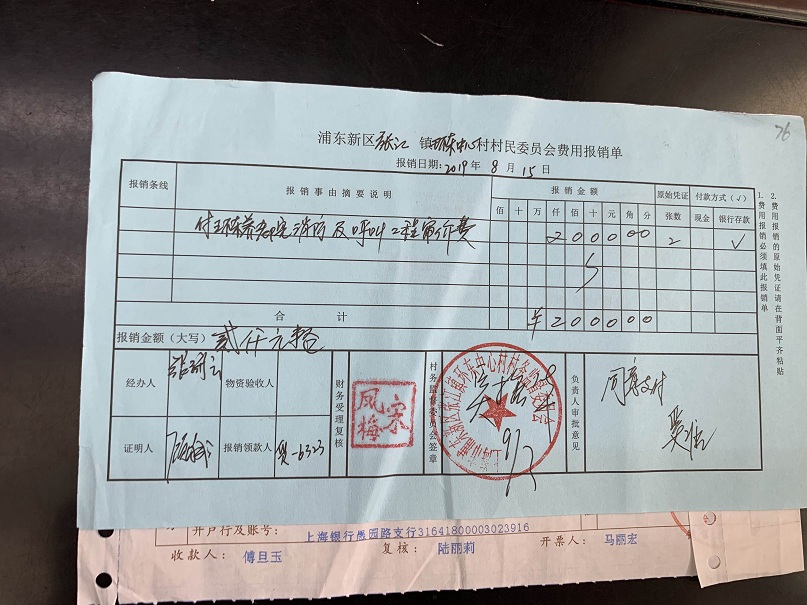 76
浦东新区张江 镇环东中心村村民委员会费用报销单
报销日期:2019年 8月 15日
报销条线 报销事由摘要说明 报销金额 原始凭证 付款方式(√)
佰 十 万 仟 佰 十 元 角 分 张数 现金 银行存款
付环东养老院消防及呼叫工程审价费 2000 00 2 √
合 计 ¥2000 00
报销金额(大写) 贰仟元整
经办人 物资验收人 财务受理复核 宋凤梅 村务监督委员会签章 负责人审批意见 同意支付
证明人 报销领款人 贷-6323
9/2
1.费用报销必须填此报销单
2.费用报销的原始凭证请在背面平齐粘贴
开户行及账号: 上海银行愚园路支行31641800003023916
收款人: 傅旦玉 复核: 陆丽莉 开票人: 马丽宏